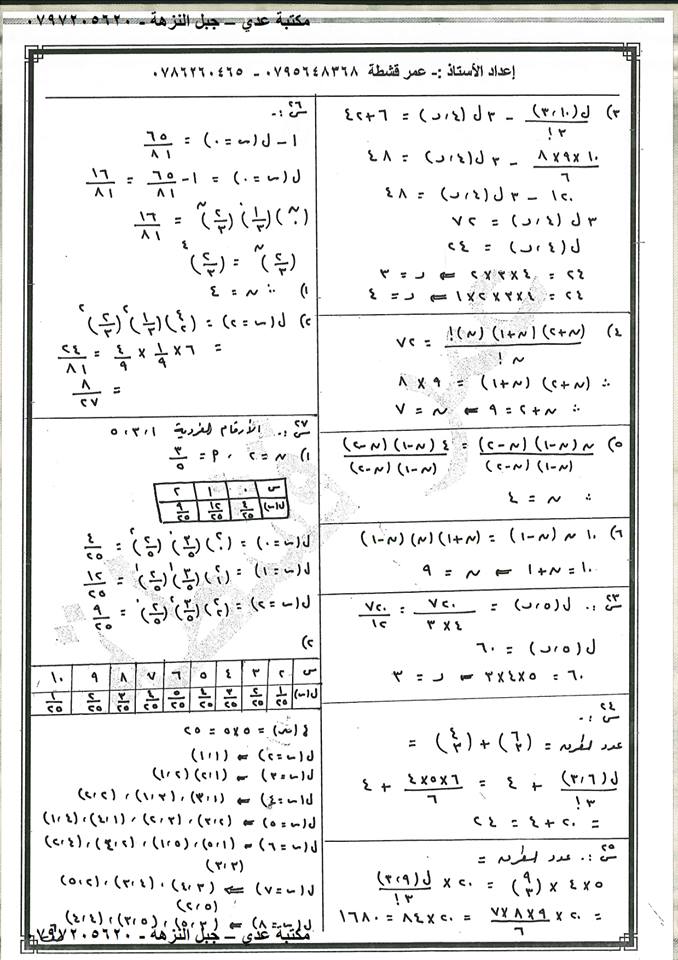 مكتبة عدي – جبل النزهة - ٠٧٩٧٢٠٥٦٢٠
إعداد الأستاذ :- عمر قشطة ٠٧٩٥٦٤٨٣٦٨ - ٠٧٨٦٢٦٠٤٦٥
٣) ل(٣،١٠) / ٣! - ٣ ل(٤،ر) = ٦ + ٤٢
١٠×٩×٨ / ٦ - ٣ ل(٤،ر) = ٤٨
١٢٠ - ٣ ل(٤،ر) = ٤٨
٣ ل(٤،ر) = ٧٢
ل(٤،ر) = ٢٤
٢٤ = ٤×٣×٢ ⇐ ر = ٣
٢٤ = ٤×٣×٢×١ ⇐ ر = ٤
٤) (ن+٢)(ن+١)(ن)! / ن! = ٧٢
∴ (ن+٢)(ن+١) = ٩ × ٨
∴ ن+٢ = ٩ ⇐ ن = ٧
٥) ن(ن-١)(ن-٢) / (ن-١)(ن-٢) = ٤(ن-١)(ن-٢) / (ن-١)(ن-٢)
∴ ن = ٤
٦) ١٠ ن(ن-١) = (ن+١)(ن)(ن-١)
١٠ = ن+١ ⇐ ن = ٩
س٢٣ :. ل(٥،ر) = ٧٢٠ / ٤×٣ = ٧٢٠ / ١٢
ل(٥،ر) = ٦٠
٦٠ = ٥×٤×٣ ⇐ ر = ٣
س٢٤ :-
عدد الطرق = (٦ ٣) + (٤ ٣) =
ل(٣،٦) / ٣! + ٤ = ٦×٥×٤ / ٦ + ٤
= ٢٠ + ٤ = ٢٤
س٢٥ :. عدد الطرق =
٥ × ٤ × (٩ ٣) = ٢٠ × ل(٣،٩) / ٣!
= ٢٠ × ٩×٨×٧ / ٦ = ٢٠ × ٨٤ = ١٦٨٠
س٢٦ :-
١ - ل(س=٠) = ٦٥ / ٨١
ل(س=٠) = ١ - ٦٥ / ٨١ = ١٦ / ٨١
(ن ٠)(١/٣)^٠(٢/٣)^ن = ١٦ / ٨١
(٢/٣)^ن = (٢/٣)^٤
١) ∴ ن = ٤
٢) ل(س=٢) = (٤ ٢)(١/٣)^٢(٢/٣)^٢
= ٦ × ١/٩ × ٤/٩ = ٢٤ / ٨١
= ٨ / ٢٧
س٢٧ :. الأرقام الفردية ١، ٣، ٥
١) ن = ٢ ، P = ٣ / ٥
س ٠ ١ ٢
ل(س) ٤/٢٥ ١٢/٢٥ ٩/٢٥
ل(س=٠) = (٢ ٠)(٣/٥)^٠(٢/٥)^٢ = ٤ / ٢٥
ل(س=١) = (٢ ١)(٣/٥)^١(٢/٥)^١ = ١٢ / ٢٥
ل(س=٢) = (٢ ٢)(٣/٥)^٢(٢/٥)^٠ = ٩ / ٢٥
٢)
س ٢ ٣ ٤ ٥ ٦ ٧ ٨ ٩ ١٠
ل(س) ١/٢٥ ٢/٢٥ ٣/٢٥ ٤/٢٥ ٥/٢٥ ٤/٢٥ ٣/٢٥ ٢/٢٥ ١/٢٥
= ٥×٥ = ٢٥
ل(س=٢) ⇐ (١،١)
ل(س=٣) ⇐ (١،٢)(٢،١)
ل(س=٤) ⇐ (٣،١)، (١،٣)، (٢،٢)
ل(س=٥) ⇐ (٣،٢)، (٢،٣)، (٤،١)، (١،٤)
ل(س=٦) ⇐ (٥،١)، (١،٥)، (٤،٢)، (٢،٤)
(٣،٣)
ل(س=٧) ⇐ (٤،٣)، (٣،٤)، (٥،٢)
(٢،٥)
ل(س=٨) ⇐ (٥،٣)، (٣،٥)، (٤،٤)
مكتبة عدي – جبل النزهة - ٠٧٩٧٢٠٥٦٢٠